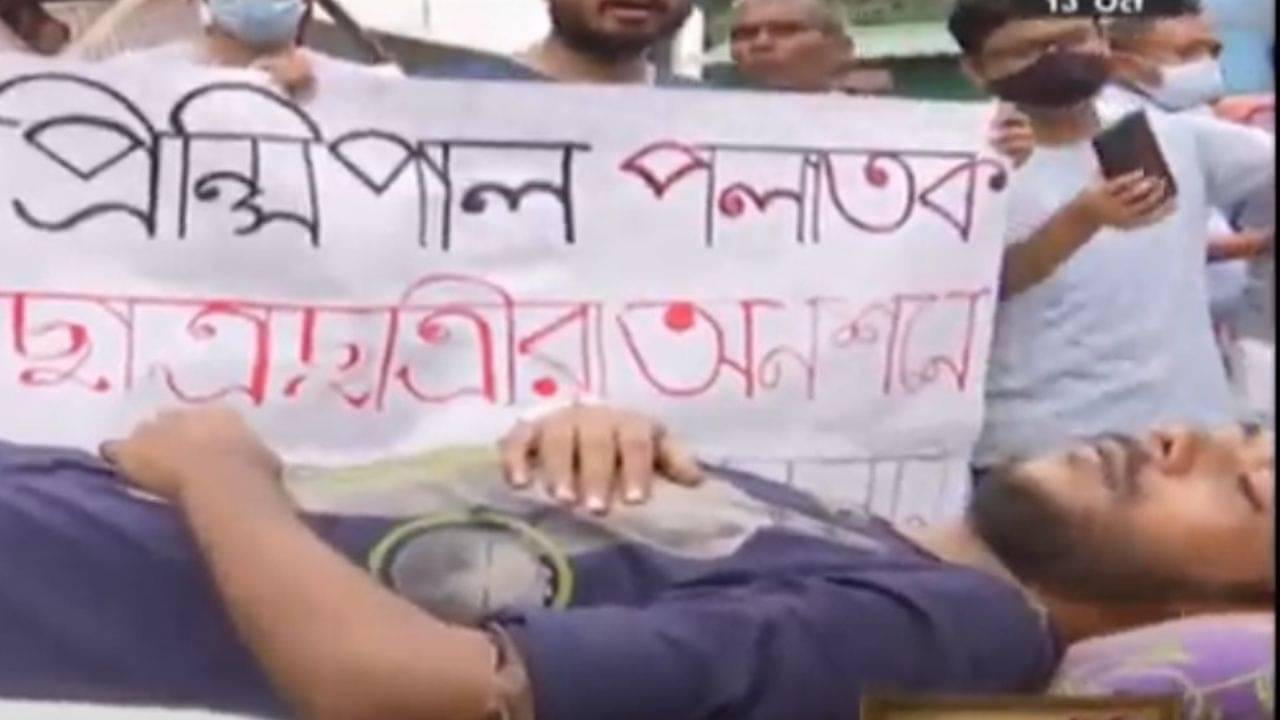 প্রিন্সিপাল পলাতক
ছাত্রছাত্রীরা অনশনে